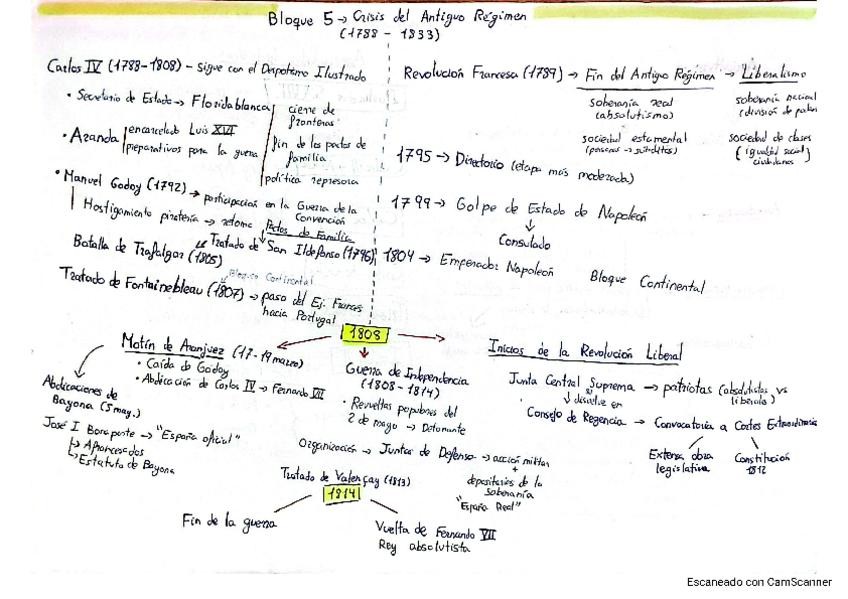 Bloque 5 → Crisis del Antiguo Régimen
(1788 - 1833)
Carlos IV (1788-1808) - Sigue con el Despotismo Ilustrado
• Secretario de Estado → Floridablanca
cierre de
fronteras
• Aranda
encarcelado Luis XVI
preparativos para la guerra
fin de los pactos de
familia
política represora
• Manuel Godoy (1792) → participación en la Guerra de la
Convención
Hostigamiento piratería → retome Pactos de Familia
Tratado de San Ildefonso (1796)
Batalla de Trafalgar (1805)
Bloqueo Continental
Tratado de Fontainebleau (1807) → paso del Ej. Francés
hacia Portugal
Revolución Francesa (1789) → Fin del Antiguo Régimen → Liberalismo
soberanía real
(absolutismo)
sociedad estamental
soberanía nacional
(división de
sociedad de clases
(igualdad social)
ciudadanos
1795 → Directorio (etapa más moderada)
1799 → Golpe de Estado de Napoleón
↓
Consulado
1804 → Emperador Napoleón
Bloque Continental
1808
Motín de Aranjuez (17-19 marzo)
• Caída de Godoy
• Abdicación de Carlos IV → Fernando VII
Abdicaciones de
Bayona (5 may.)
José I Bonaparte → "España oficial"
↳ Afrancesados
↳ Estatuto de Bayona
Guerra de Independencia
(1808 - 1814)
• Revueltas populares del
2 de mayo → Detonante
Organización → Juntas de Defensa → acción militar
+
depositarios de la
soberanía
"España Real"
Inicios de la Revolución Liberal
Junta Central Suprema → patriotas (absolutistas vs
liberales)
↓ disuelve en
Consejo de Regencia → Convocatoria a Cortes Extraordinarias
Extensa obra
legislativa
Constitución
1812
Tratado de Valençay (1813)
1814
Fin de la guerra
Vuelta de Fernando VII
Rey absolutista
Escaneado con CamScanner